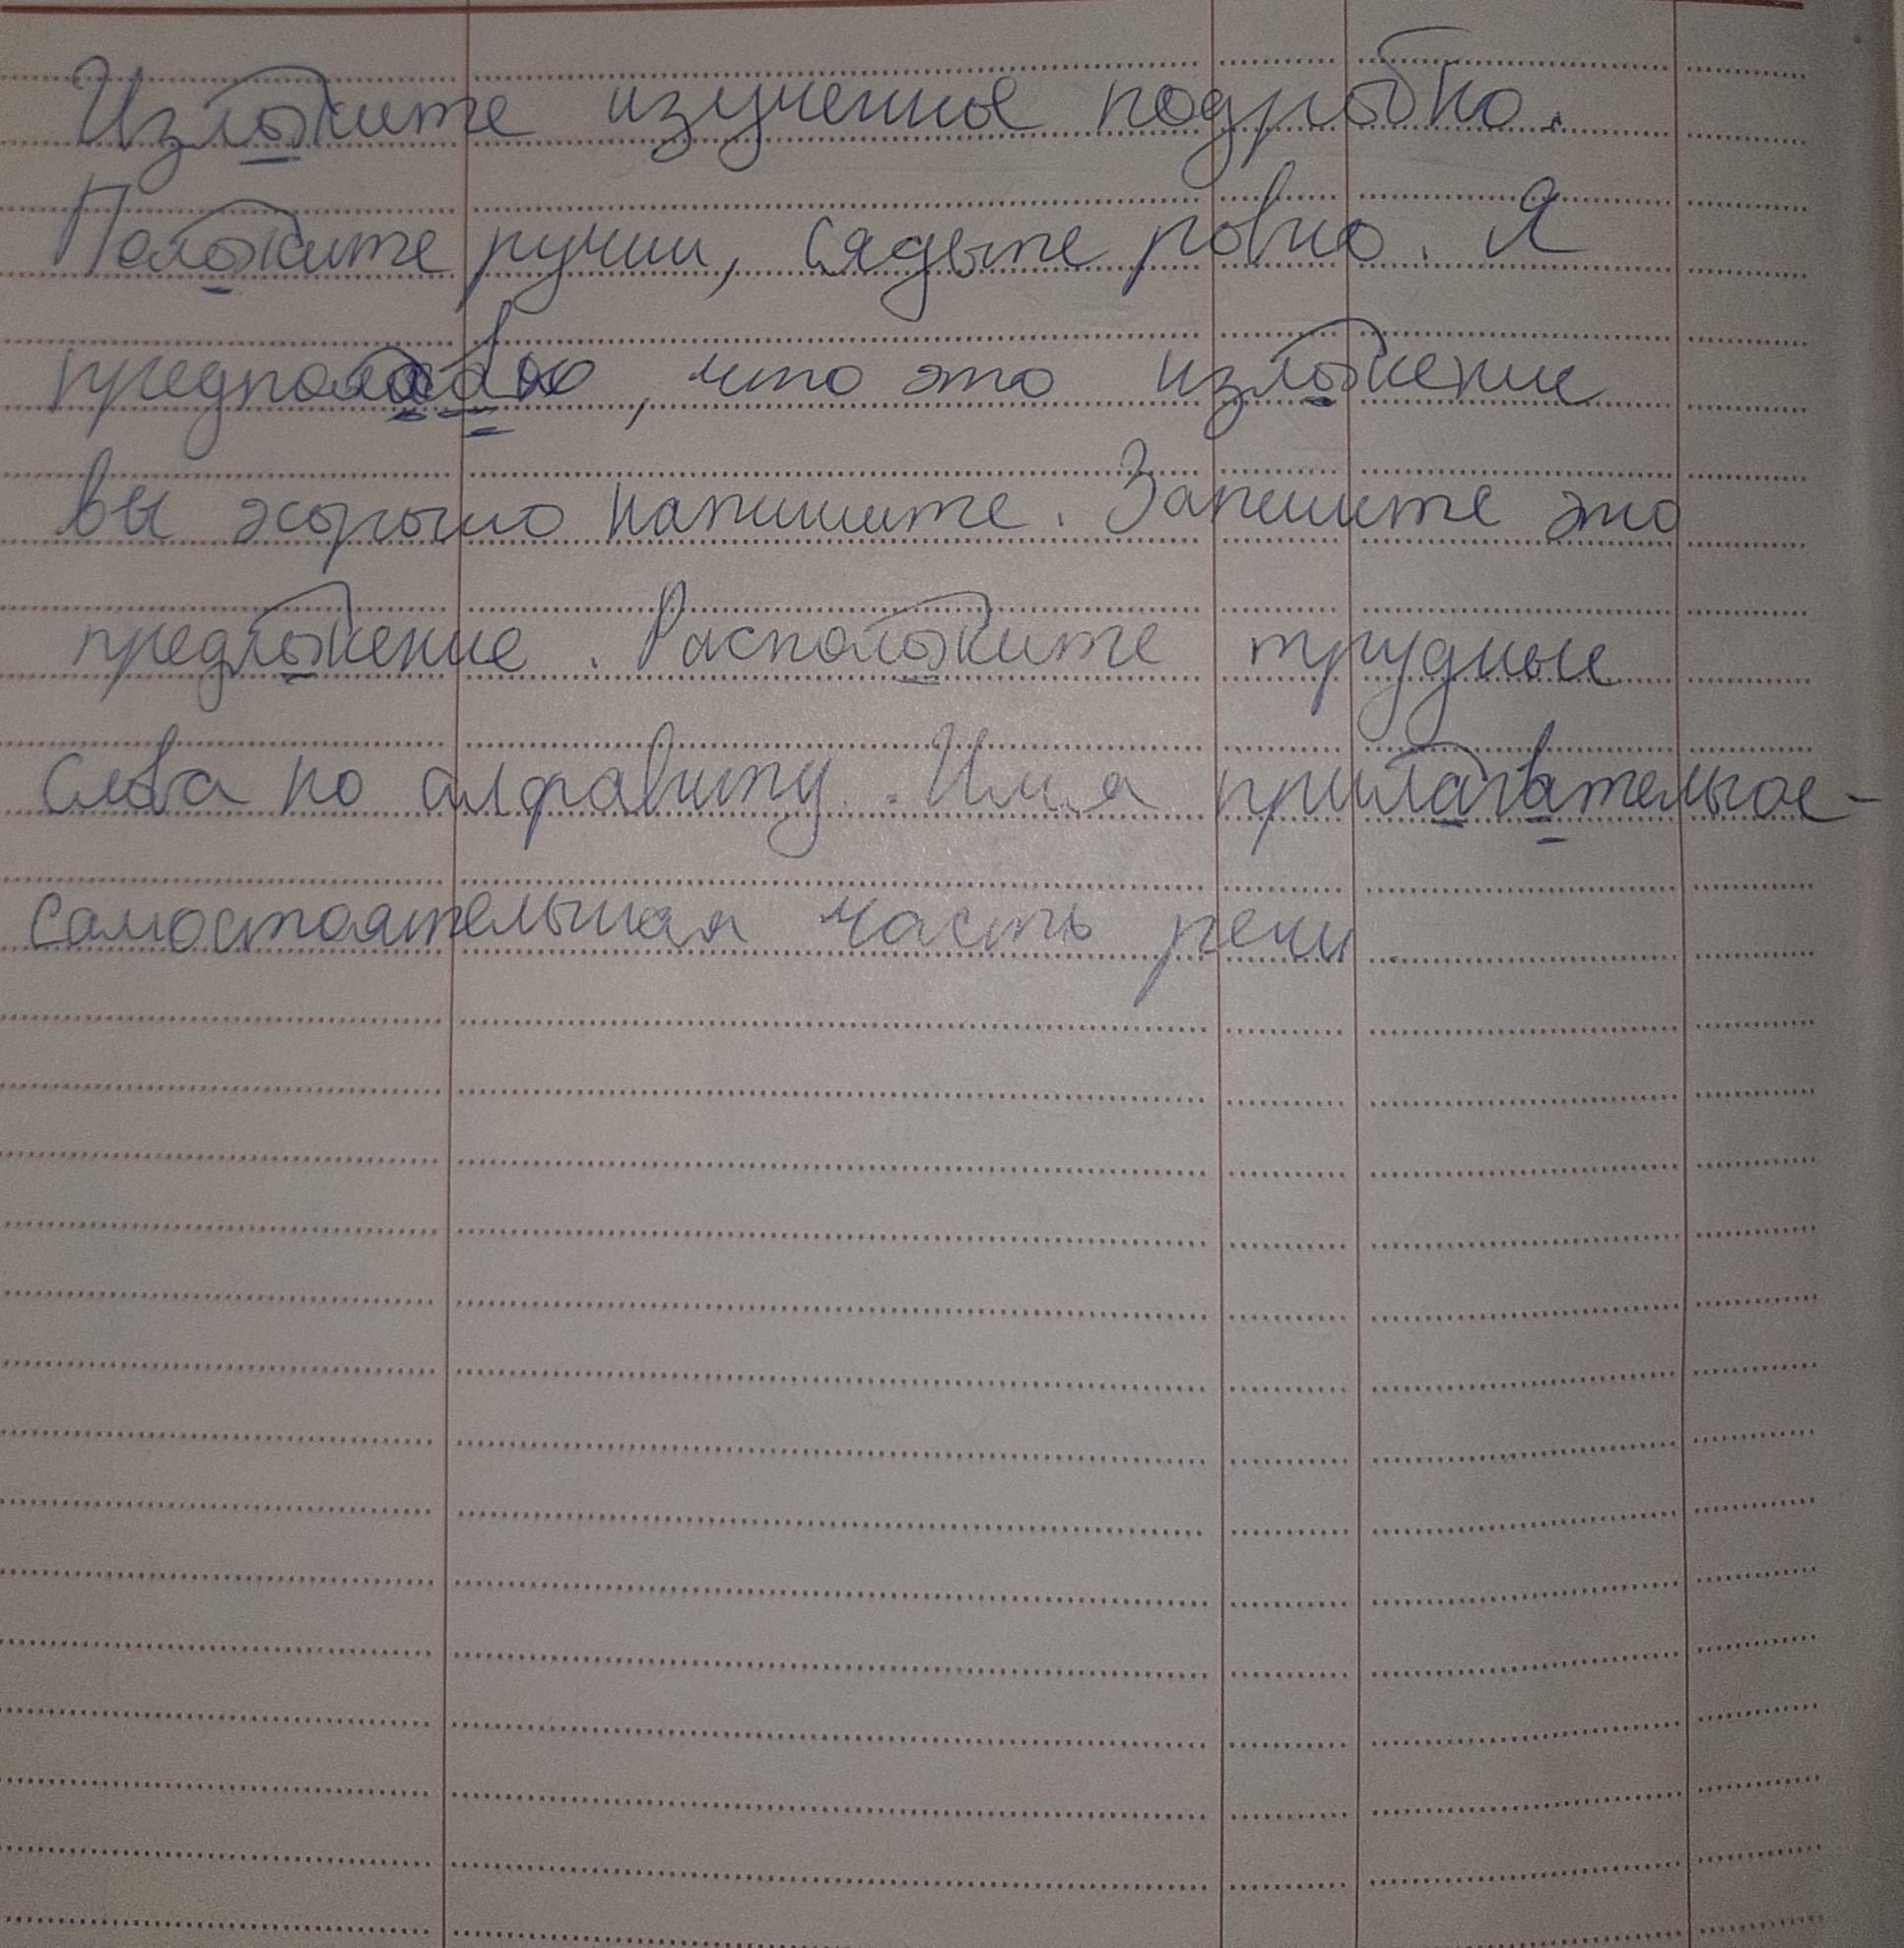 Изложите изученное подробно.
Положите ручки, сядьте ровно. Я
, что это изложение
вы хорошо напишите. Запишите это
предложение. Расположите трудные
слова по алфавиту. Имя прилагательное -
самостоятельная часть речи.